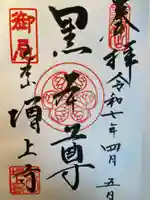 奉拝
令和七年四月五日
黒本尊
御忌
大本山
増上寺